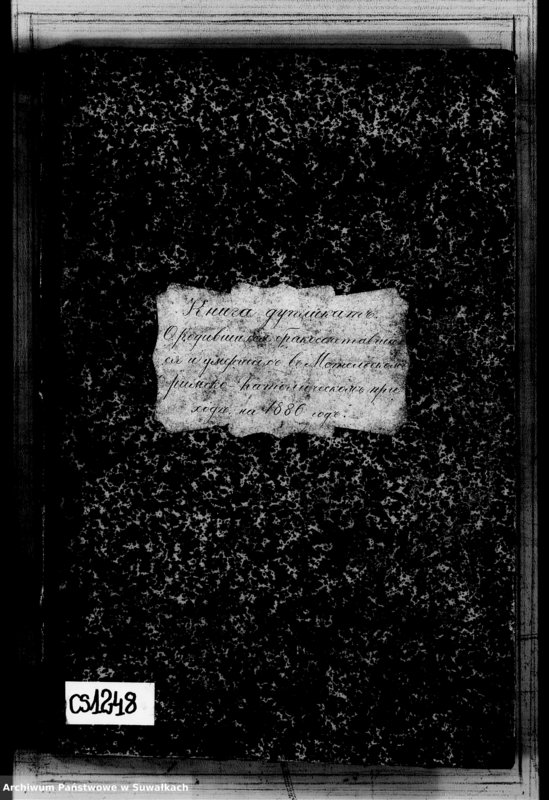 Книга дупликатъ
О родившихся, бракосочетавших
ся и умершихъ въ
римско-католическомъ при
ходѣ, на 1886 годъ.
CS1248
Archiwum Państwowe w Suwałkach